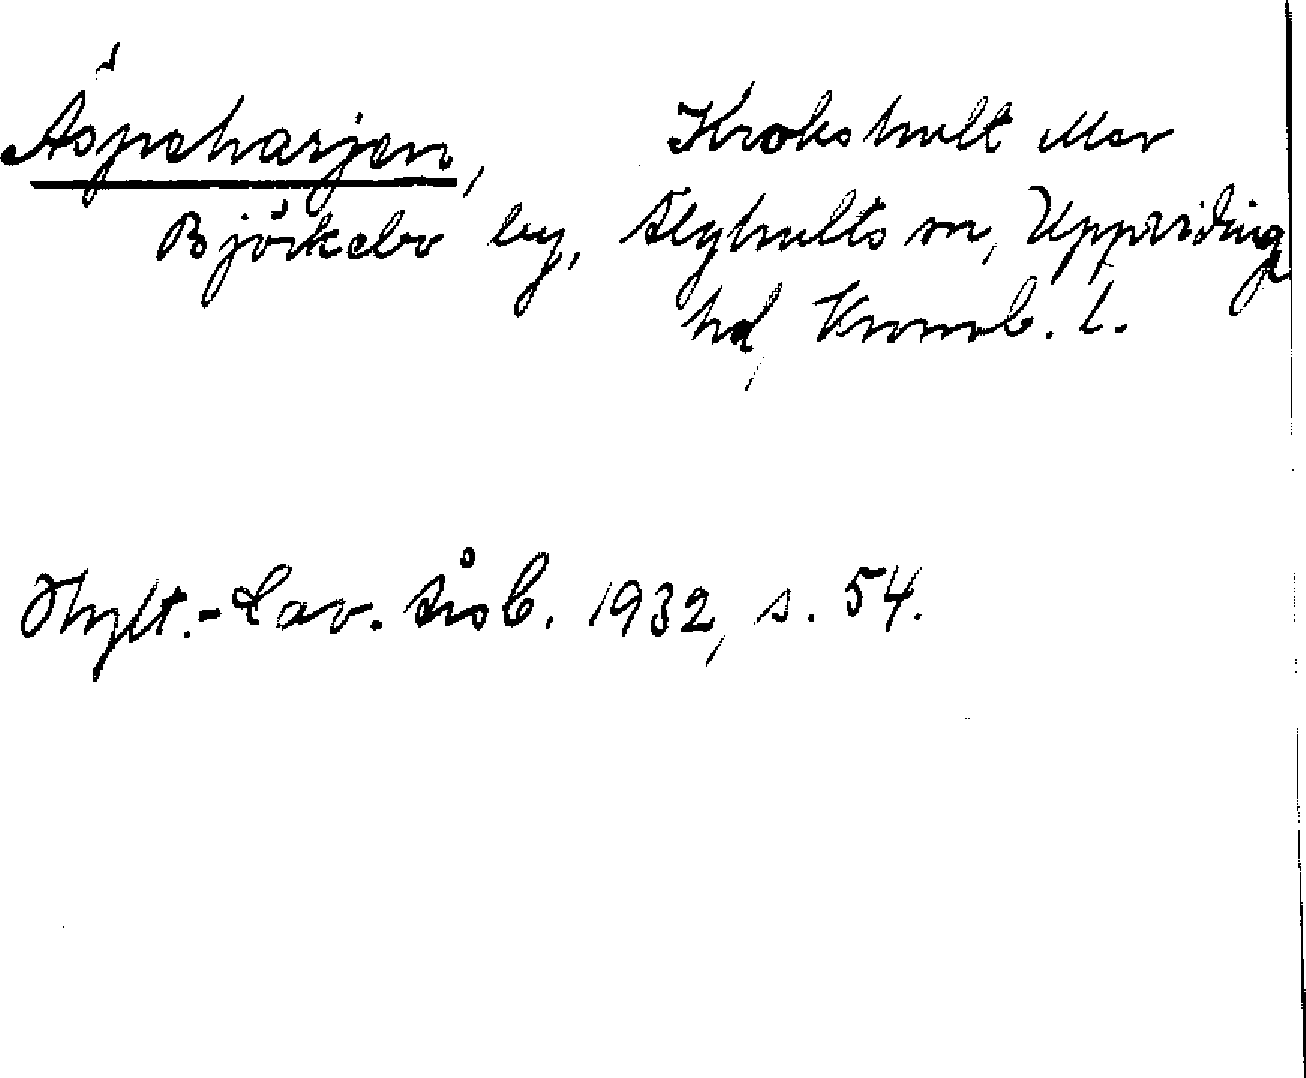 Äspeharjen, Krokshult Mer
Björkebo by, Älghults sn, Uppviding
hd, Kronob. l.
Hylt.-Cav. årsb. 1932, s. 54.